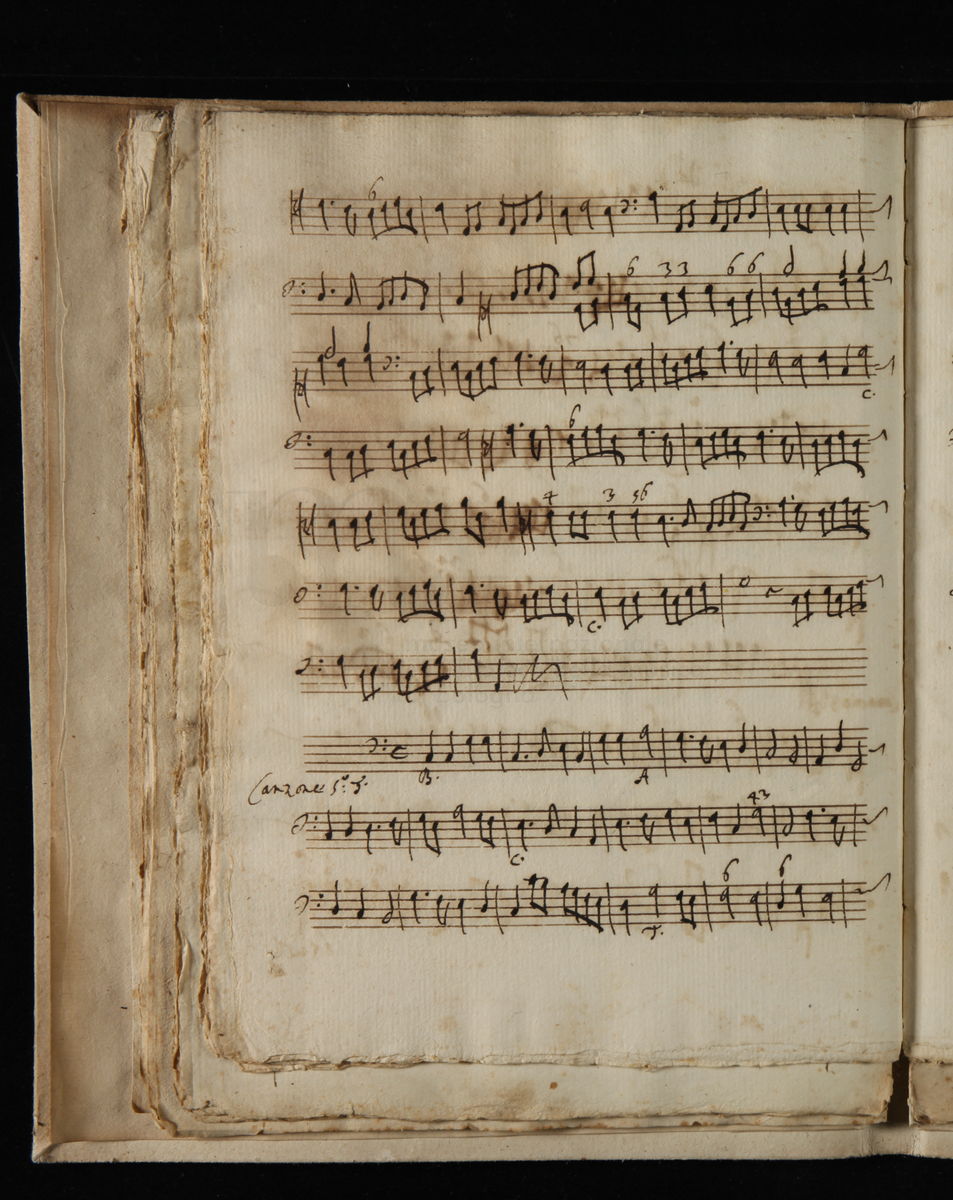 6
6 33 66
C.
6
4 3 56
C.
B. A
Canzone 5.ª
43
C.
6 6
T.